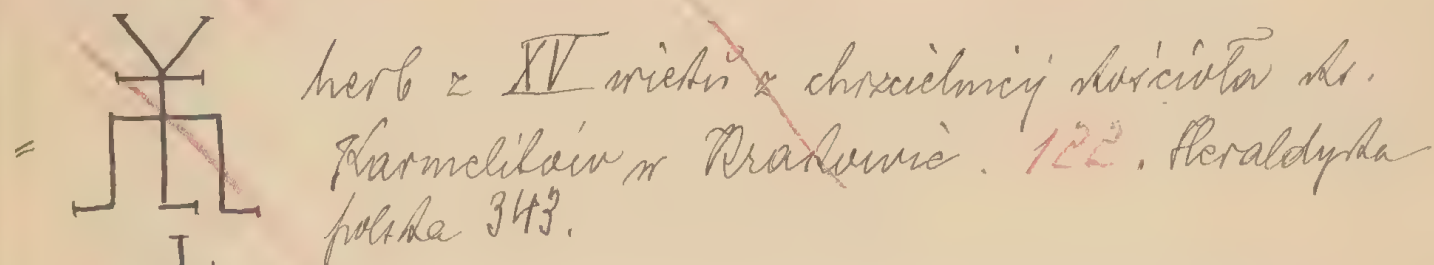 herb z XV wieku z chrzcielnicy kościoła ks.
= Karmelitów w Krakowie. 122. Heraldyka
polska 343.